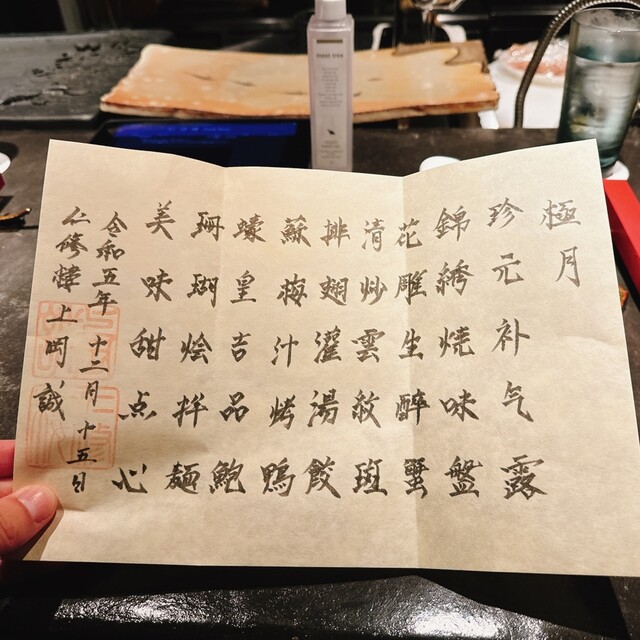 極月
珍元补气露
錦綉焼味盤
花雕生醉蟹
清炒雲紋斑
排翅灌湯餃
蘇梅汁烤鴨
蠔皇吉品鮑
珊瑚烩拌麺
美味甜点心
令和五年十二月十五日
仁修樓上岡誠